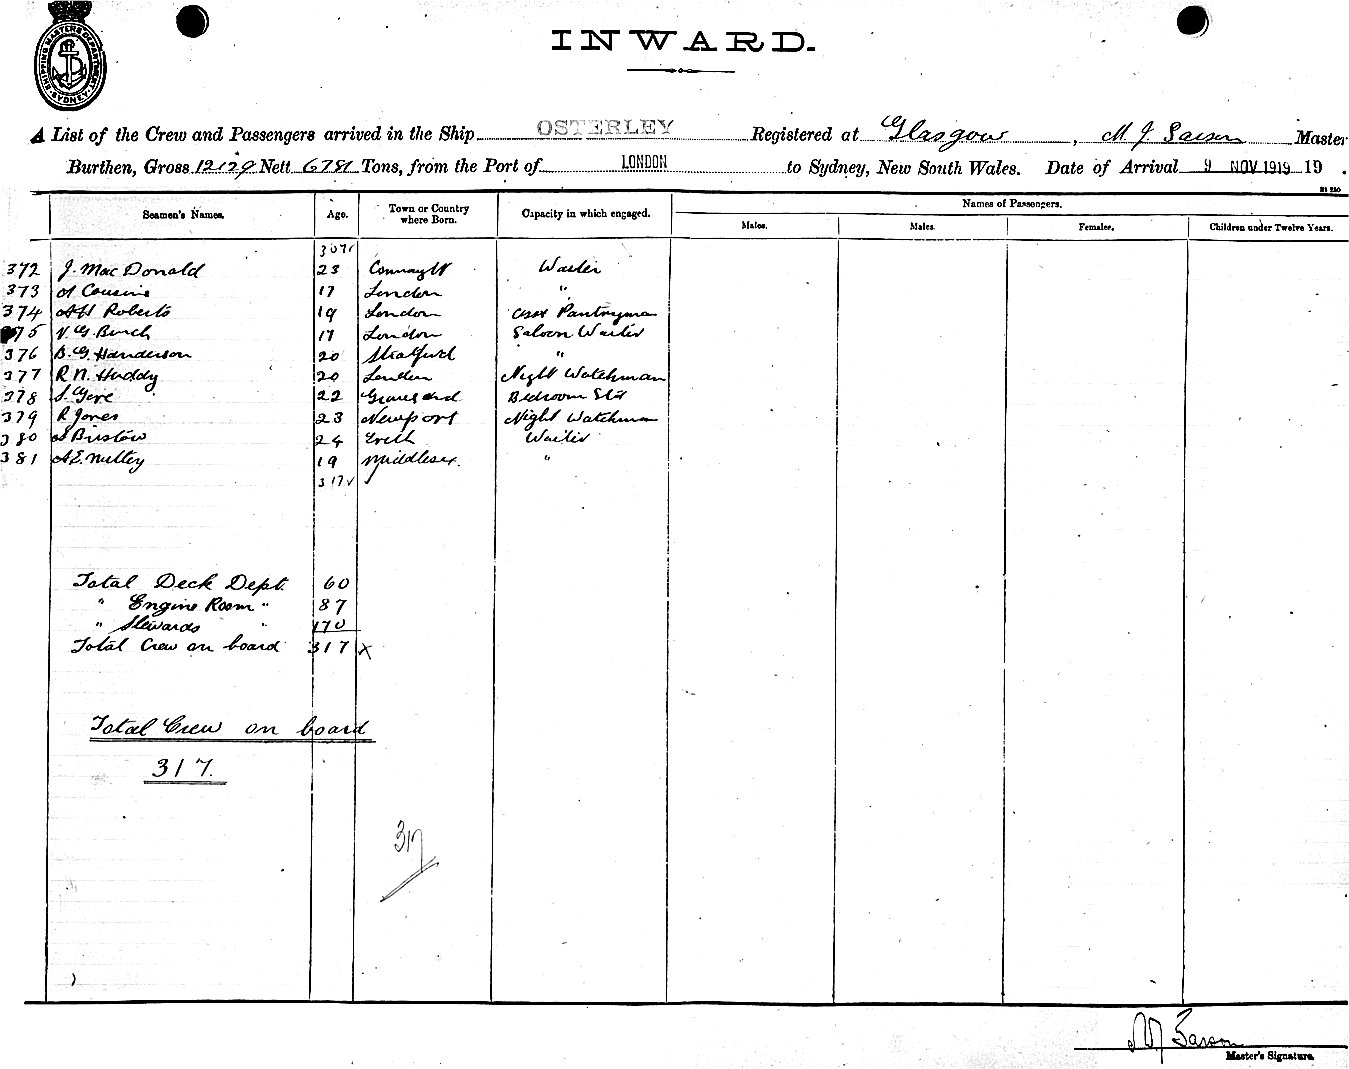 SHIPPING MASTER'S DEPARTMENT SYDNEY
INWARD.
A List of the Crew and Passengers arrived in the Ship OSTERLEY Registered at Glasgow, M. J. Master
Burthen, Gross 12129 Nett 6781 Tons, from the Port of LONDON to Sydney, New South Wales. Date of Arrival 9 NOV 1919 19 .
Names of Passengers.
Seamen's Names. Age. Town or Country where Born. Capacity in which engaged. Males. Males. Females. Children under Twelve Years.
307
372 J. Mac Donald 23 Connaught Waiter
373 A Cousins 17 London "
374 AH Roberts 19 London asst Pantryman
375 V. G. Burch 17 London Saloon Waiter
376 B. G. Handerson 20 Stratford "
377 R N. Huddy 20 London Night Watchman
378 S. Gore 22 Gravesend Bedroom Std
379 R Jones 23 Newport Night Watchman
380 Bristow 24 Erith Waiter
381 A.E. Nutley 19 Middlesex. "
317
Total Deck Dept. 60
" Engine Room " 87
" Stewards " 170
Total Crew on board 317 X
Total Crew on board
317.
317
M J
Master's Signature.